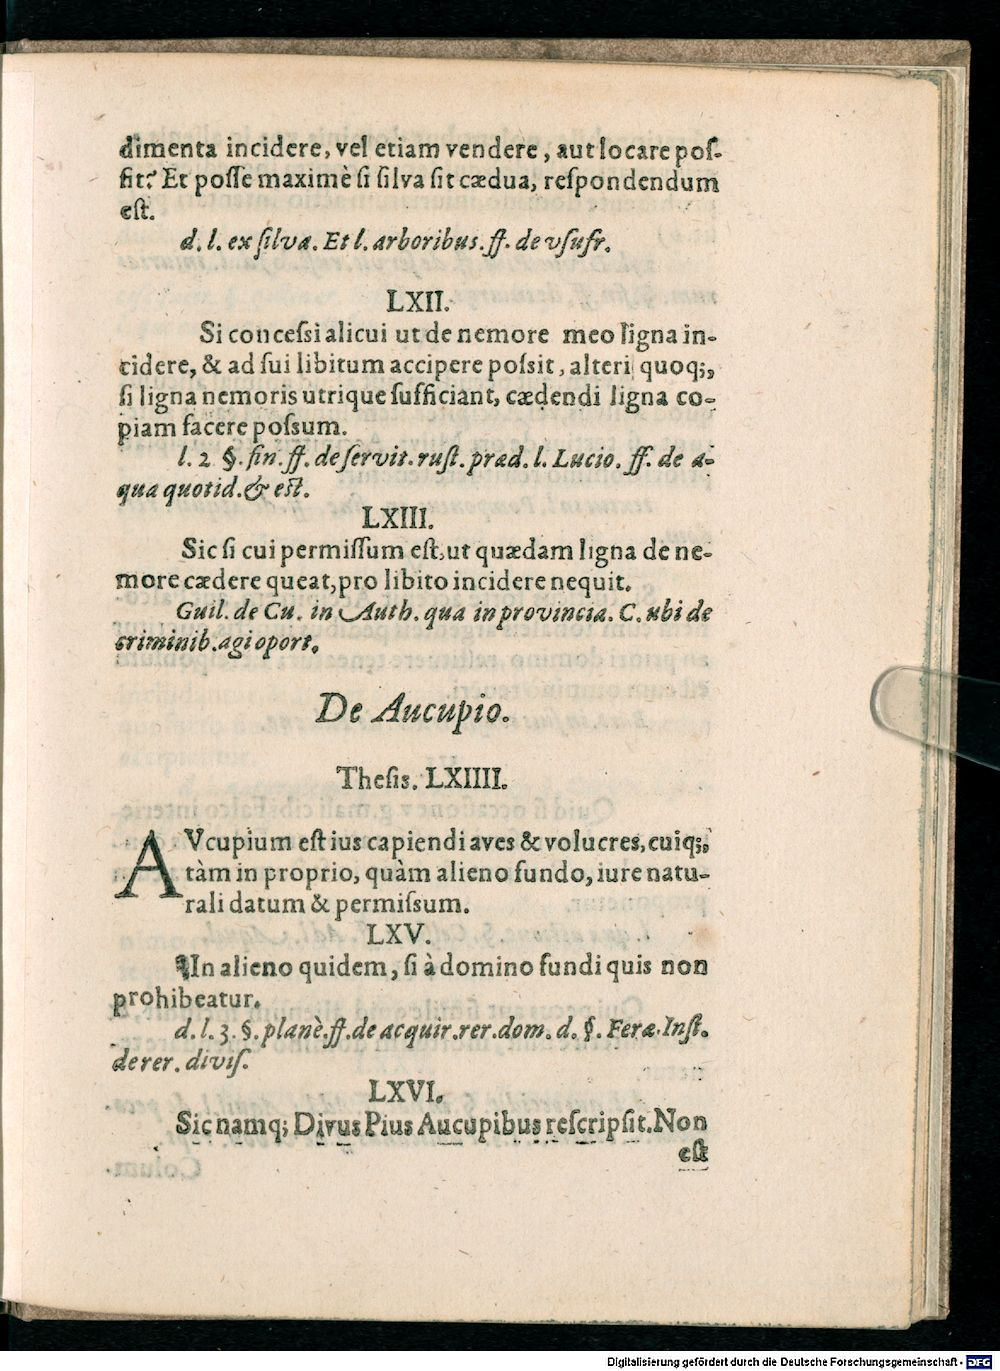 dimenta incidere, vel etiam vendere, aut locare poſ-
ſit? Et poſſe maximè ſi ſilva ſit cædua, reſpondendum
eſt.
d. l. ex ſilva. Et l. arboribus. ff. de vſufr.
LXII.
Si conceſsi alicui ut de nemore meo ligna in-
cidere, & ad ſui libitum accipere poſsit, alteri quoq;,
ſi ligna nemoris utrique ſufficiant, cædendi ligna co-
piam facere poſsum.
l. 2 §. fin. ff. de ſervit. ruſt. præd. l. Lucio. ff. de a-
qua quotid. & eſt.
LXIII.
Sic ſi cui permiſſum eſt, ut quædam ligna de ne-
more cædere queat, pro libito incidere nequit.
Guil. de Cu. in Auth. qua in provincia. C. ubi de
criminib. agi oport.
De Aucupio.
Theſis. LXIIII.
AVcupium eſt ius capiendi aves & volucres, cuiq;,
tàm in proprio, quàm alieno fundo, iure natu-
rali datum & permiſsum.
LXV.
In alieno quidem, ſi à domino fundi quis non
prohibeatur.
d. l. 3. §. planè. ff. de acquir. rer. dom. d. §. Feræ. Inſt.
de rer. diviſ.
LXVI.
Sic namq; Divus Pius Aucupibus reſcripſit. Non
eſt
Digitalisierung gefördert durch die Deutsche Forschungsgemeinschaft - DFG